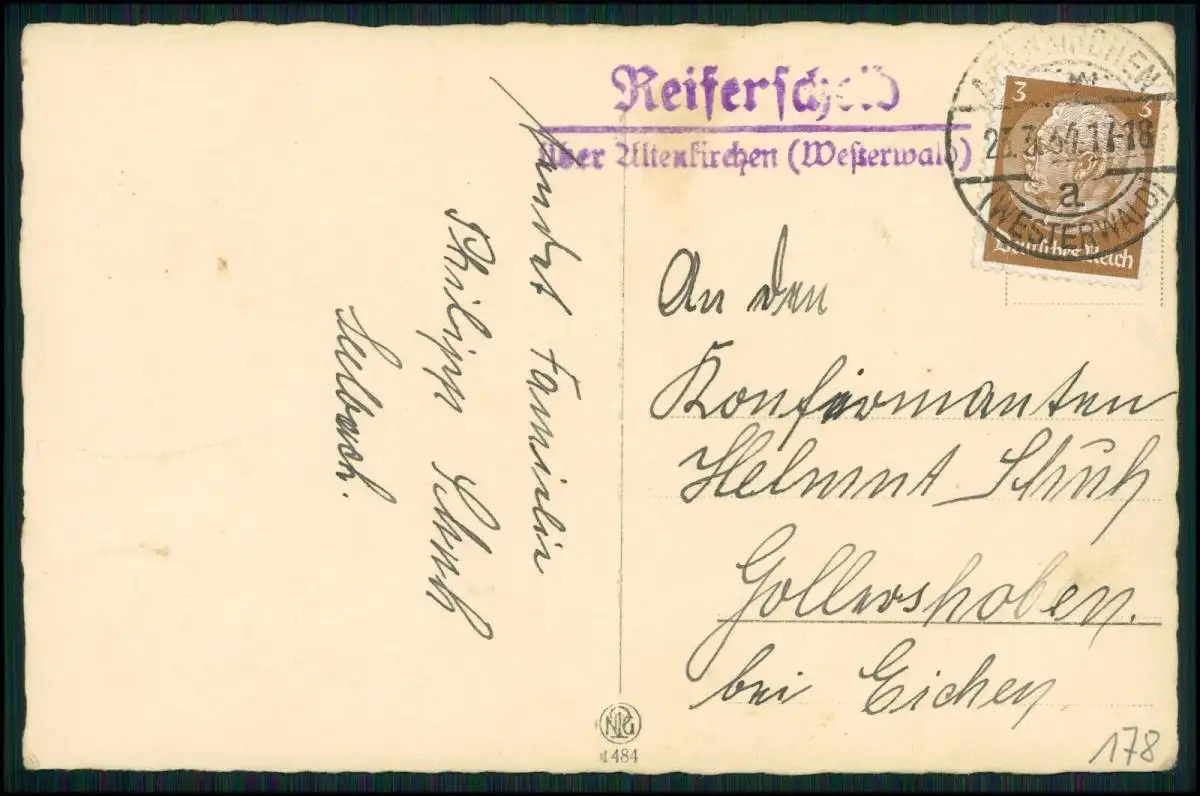 Reiferscheid
über Altenkirchen (Westerwald)
ALTENKIRCHEN
23.3.34.17-18
a
(WESTERWALD)
3 3
Deutsches Reich
An den
Konfirmanten
Helmut Schuh
Gollershoben.
bei Eichen
sendet Familie
Philipp Schuh
Seelbach.
NLG
1484
178